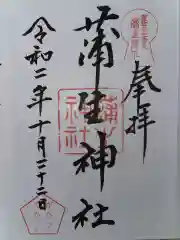 奉拝
蒲生神社
令和二年十月二十二日
蒲生神社